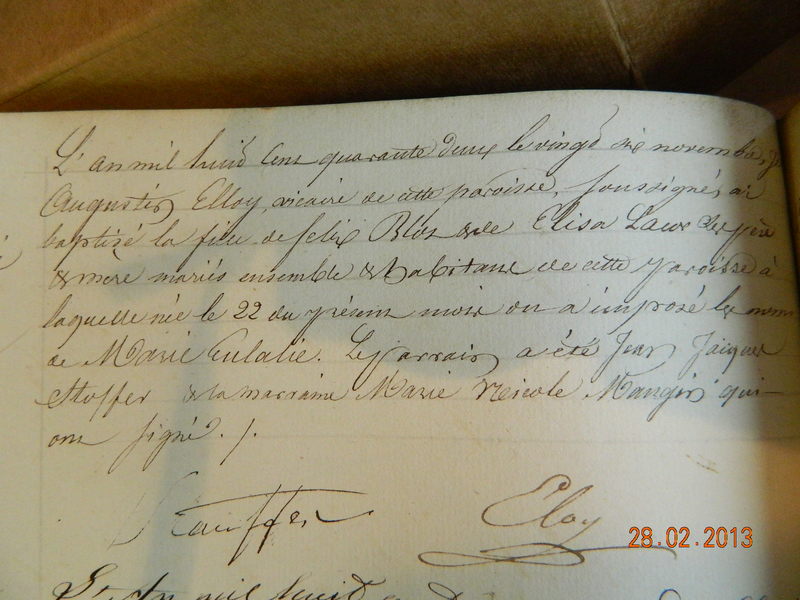 L'an mil huit cent quarante deux le vingt six novembre, je
Augustin Elloy, vicaire de cette paroisse, soussigné, ai
baptisé la fille de felix Blot & de Elisa ses père
& mère mariés ensemble & habitans de cette paroisse à
laquelle née le 22 du présent mois on a imposé les noms
de Marie Eulalie. Le parrain a été Jean Jaiques
Stoffer & la marraine Marie Neicole Mangin qui
ont signé ./.
Stauffer Eloy
L'An mil huit
28.02.2013